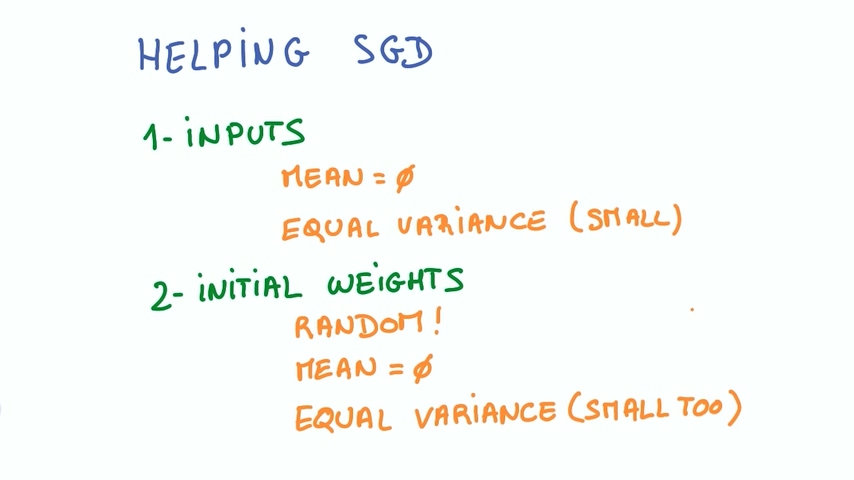 HELPING SGD
1- iNPUTS
MEAN = ø
EQUAL VARIANCE (SMALL)
2- iNiTiAL WEiGHTS
RANDOM!
MEAN = ø
EQUAL VARIANCE (SMALL TOO)